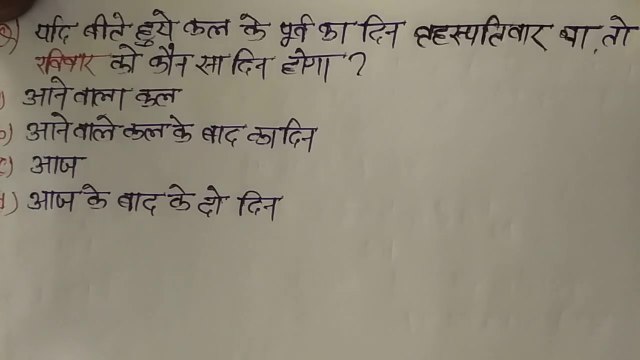 Q) यदि बीते हुये कल के पूर्व का दिन वृहस्पतिवार था, तो
रविवार को कौन सा दिन होगा ?
a) आने वाला कल
b) आने वाले कल के बाद का दिन
c) आज
d) आज के बाद के दो दिन